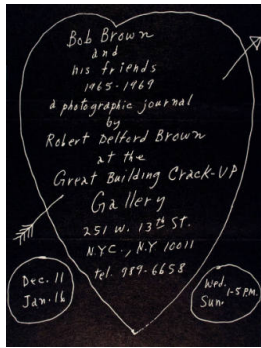 Bob Brown
and
his friends
1965-1969
a photographic journal
by
Robert Delford Brown
at the
Great Building Crack-UP
Gallery
251 W. 13th St.
N.Y.C., N.Y 10011
tel. 989-6658
Dec. 11
Jan. 16
Wed.
Sun. 1-5 P.M.